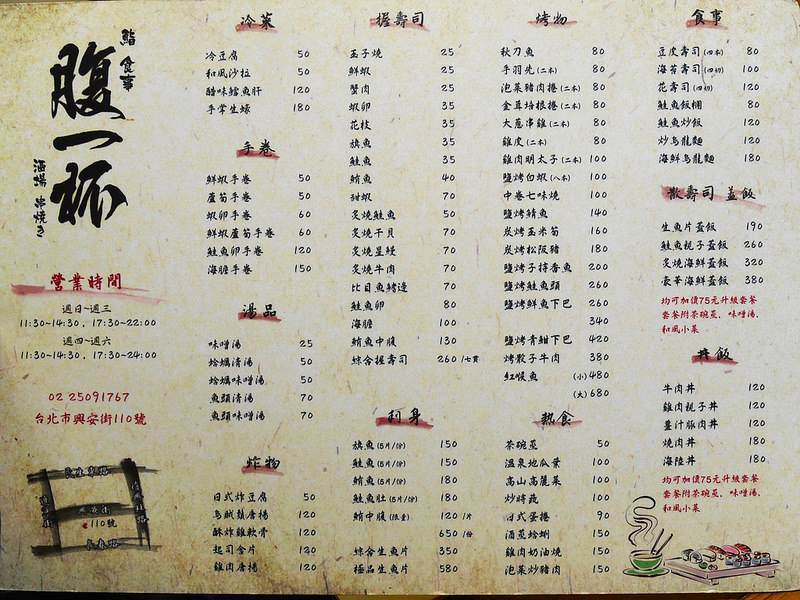 鮨 食事
腹一杯
酒場 串焼き
營業時間
週日~週三
11:30~14:30, 17:30~22:00
週四~週六
11:30~14:30, 17:30~24:00
02 25091767
台北市興安街110號
興安街
110號
長春路
冷菜
冷豆腐 50
和風沙拉 50
醋味鱈魚肝 120
手掌生蠔 180
手卷
鮮蝦手卷 50
蘆筍手卷 50
蝦卵手卷 60
鮮蝦蘆筍手卷 60
鮭魚卵手卷 120
海膽手卷 150
湯品
味噌湯 25
蛤蠣清湯 50
蛤蠣味噌湯 50
魚頭清湯 70
魚頭味噌湯 70
炸物
日式炸豆腐 50
烏賊鬚唐揚 120
酥炸雞軟骨 120
起司合片 120
雞肉唐揚 120
握壽司
玉子燒 25
鮮蝦 25
蟹肉 25
蝦卵 35
花枝 35
旗魚 35
鮭魚 35
鮪魚 40
甜蝦 70
炙燒鮭魚 50
炙燒干貝 70
炙燒星鰻 70
炙燒牛肉 70
比目魚鰭邊 70
鮭魚卵 80
海膽 100
鮪魚中腹 130
綜合握壽司 260 /七貫
刺身
旗魚(5片/份) 150
鮭魚(5片/份) 150
鮪魚(5片/份) 180
鮭魚肚(5片/份) 180
鮪中腹(限量) 120 /片
650 /份
綜合生魚片 350
極品生魚片 580
烤物
秋刀魚 80
手羽先(二本) 80
泡菜豬肉捲(二本) 80
金茸培根捲(二本) 80
大蔥串雞(二本) 80
雞皮(二本) 80
雞肉明太子(二本) 100
鹽烤白蝦(八本) 100
中卷七味燒 100
鹽烤鯖魚 140
炭烤玉米筍 160
炭烤松阪豬 180
鹽烤子持香魚 200
鹽烤鮭魚頭 260
鹽烤鮮魚下巴 260
340
鹽烤青魽下巴 420
烤骰子牛肉 380
紅喉魚 (小)480
(大)680
熱食
茶碗蒸 50
溫泉地瓜葉 100
高山高麗菜 100
炒時蔬 100
日式蛋捲 90
酒蒸蛤蜊 150
雞肉奶油燒 150
泡菜炒豬肉 150
食事
豆皮壽司(四本) 80
海苔壽司(四切) 100
花壽司(四切) 120
鮭魚飯糰 80
鮭魚炒飯 120
炒烏龍麵 120
海鮮烏龍麵 180
散壽司 蓋飯
生魚片蓋飯 190
鮭魚親子蓋飯 260
炙燒海鮮蓋飯 320
豪華海鮮蓋飯 380
均可加價75元升級套餐
套餐附茶碗蒸、味噌湯、
和風小菜
丼飯
牛肉丼 120
雞肉親子丼 120
薑汁豚肉丼 120
燒肉丼 180
海陸丼 180
均可加價75元升級套餐
套餐附茶碗蒸、味噌湯、
和風小菜